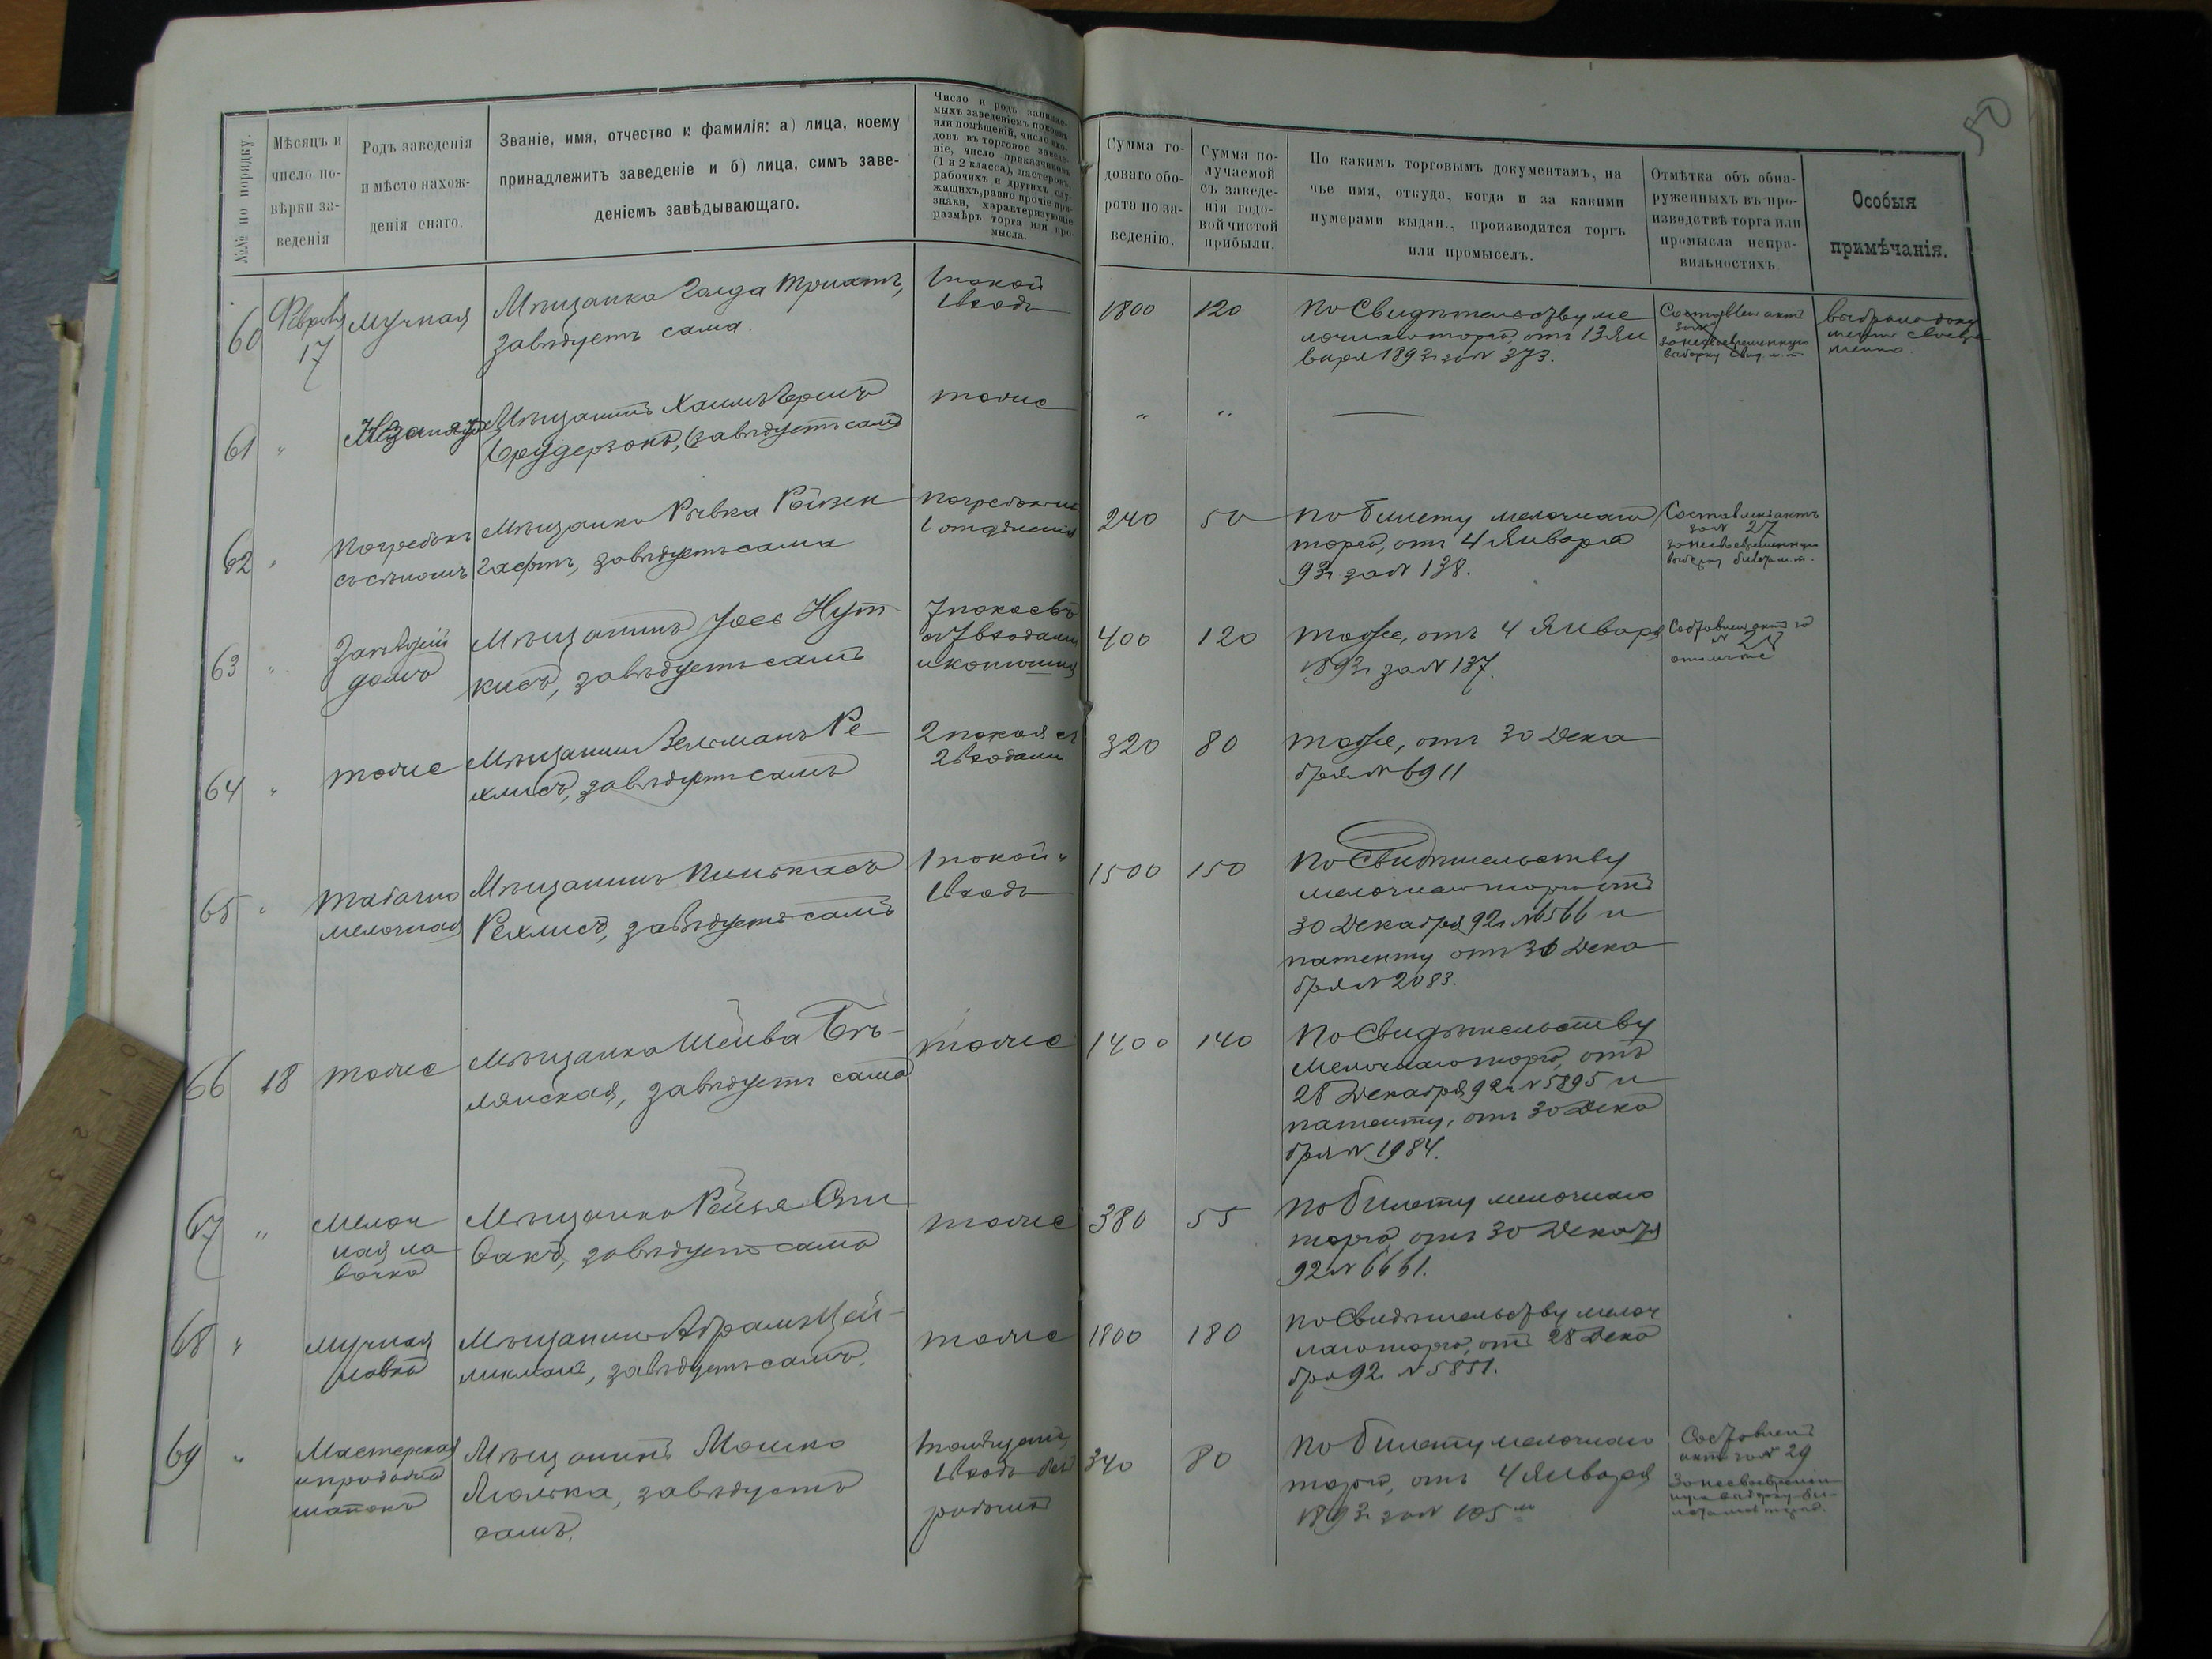 50
№№ по порядку.
Мѣсяцъ и
число по-
вѣрки за-
веденія
Родъ заведенія
и мѣсто нахож-
денія онаго.
Званіе, имя, отчество и фамилія: а) лица, коему
принадлежитъ заведеніе и б) лица, симъ заве-
деніемъ завѣдывающаго.
Число и родъ занимае-
мыхъ заведеніемъ покоевъ
или помѣщеній, число вхо-
довъ въ торговое заведе-
ніе, число приказчиковъ
(1 и 2 класса), мастеровъ,
рабочихъ и другихъ слу-
жащихъ, равно прочіе при-
знаки, характеризующіе
размѣръ торга или про-
мысла.
Сумма го-
доваго обо-
рота по за-
веденію.
Сумма по-
лучаемой
съ заведе-
нія годо-
вой чистой
прибыли.
По какимъ торговымъ документамъ, на
чье имя, откуда, когда и за какими
нумерами выдан., производится торгъ
или промыселъ.
Отмѣтка объ обна-
руженныхъ въ про-
изводствѣ торга или
промысла непра-
вильностяхъ.
Особыя
примѣчанія.
60
Февраля
17
Мучная
Мѣщанка Голда Тріхтъ,
завѣдуетъ сама.
1 покой
1 входъ
1800
120
По Свидѣтельству ме
лочнаго торга, отъ 13 Ян
варя 1893 г за N 373.
Составленъ актъ
за несвоевременную
выборку свид. м. т.
61
"
Мѣщанинъ Хаимъ Гершъ
завѣдуетъ самъ
тоже
"
"
62
"
Погребокъ
Мѣщанка Ривка Ройзен
гафтъ, завѣдуетъ сама
1 отдѣленія
240
50
По билету мелочнаго
торга, отъ 4 Января
93 г за N 138.
Составленъ актъ
за N 27
за несвоевременную
выборку билета м. т.
63
"
Заѣзжій
домъ
Мѣщанинъ Іосъ Нут-
кисъ, завѣдуетъ самъ
7 покоевъ
съ 7 входами
и конюшня
400
120
Тоже, отъ 4 Января
1893 г за N 137.
Составленъ актъ за
64
"
тоже
Мѣщанинъ Зельманъ Ре
хлисъ, завѣдуетъ самъ
2 покоя съ
2 входами
320
80
Тоже, отъ 30 Дека
бря N 6911
65
"
Табачно
мелочная
Мѣщанинъ Пинькасъ
Рехлисъ, завѣдуетъ самъ
1 покой "
1 входъ
1500
150
По Свидѣтельству
мелочнаго торга отъ
30 Декабря 92 г N 6566 и
патенту отъ 30 Дека
бря N 2083.
66
18
Тоже
Мѣщанка Шейва Бѣ-
лянская, завѣдуетъ сама
тоже
1400
140
По Свидѣтельству
мелочнаго торга, отъ
28 Декабря 92 г N 5895 и
патенту, отъ 30 Дека
бря N 1984.
67
"
Мелоч
ная ла
вочка
Мѣщанка Рейзя Спи
вакъ, завѣдуетъ сама
тоже
380
55
По билету мелочнаго
торга, отъ 30 Декабря
92 г N 6661.
68
"
Мучная
лавка
Мѣщанинъ Абрамъ Цей-
ликманъ, завѣдуетъ самъ.
тоже
1800
180
По Свидѣтельству мелоч
наго торга, отъ 28 Дека
бря 92 г N 5851.
69
"
Мастерская
и продажа
шапокъ
Мѣщанинъ Мошко
завѣдуетъ
самъ.
1 входъ
340
80
По билету мелочнаго
торга, отъ 4 Января
1893 г за N 105
Составленъ
актъ за N 29
за несвоевремен